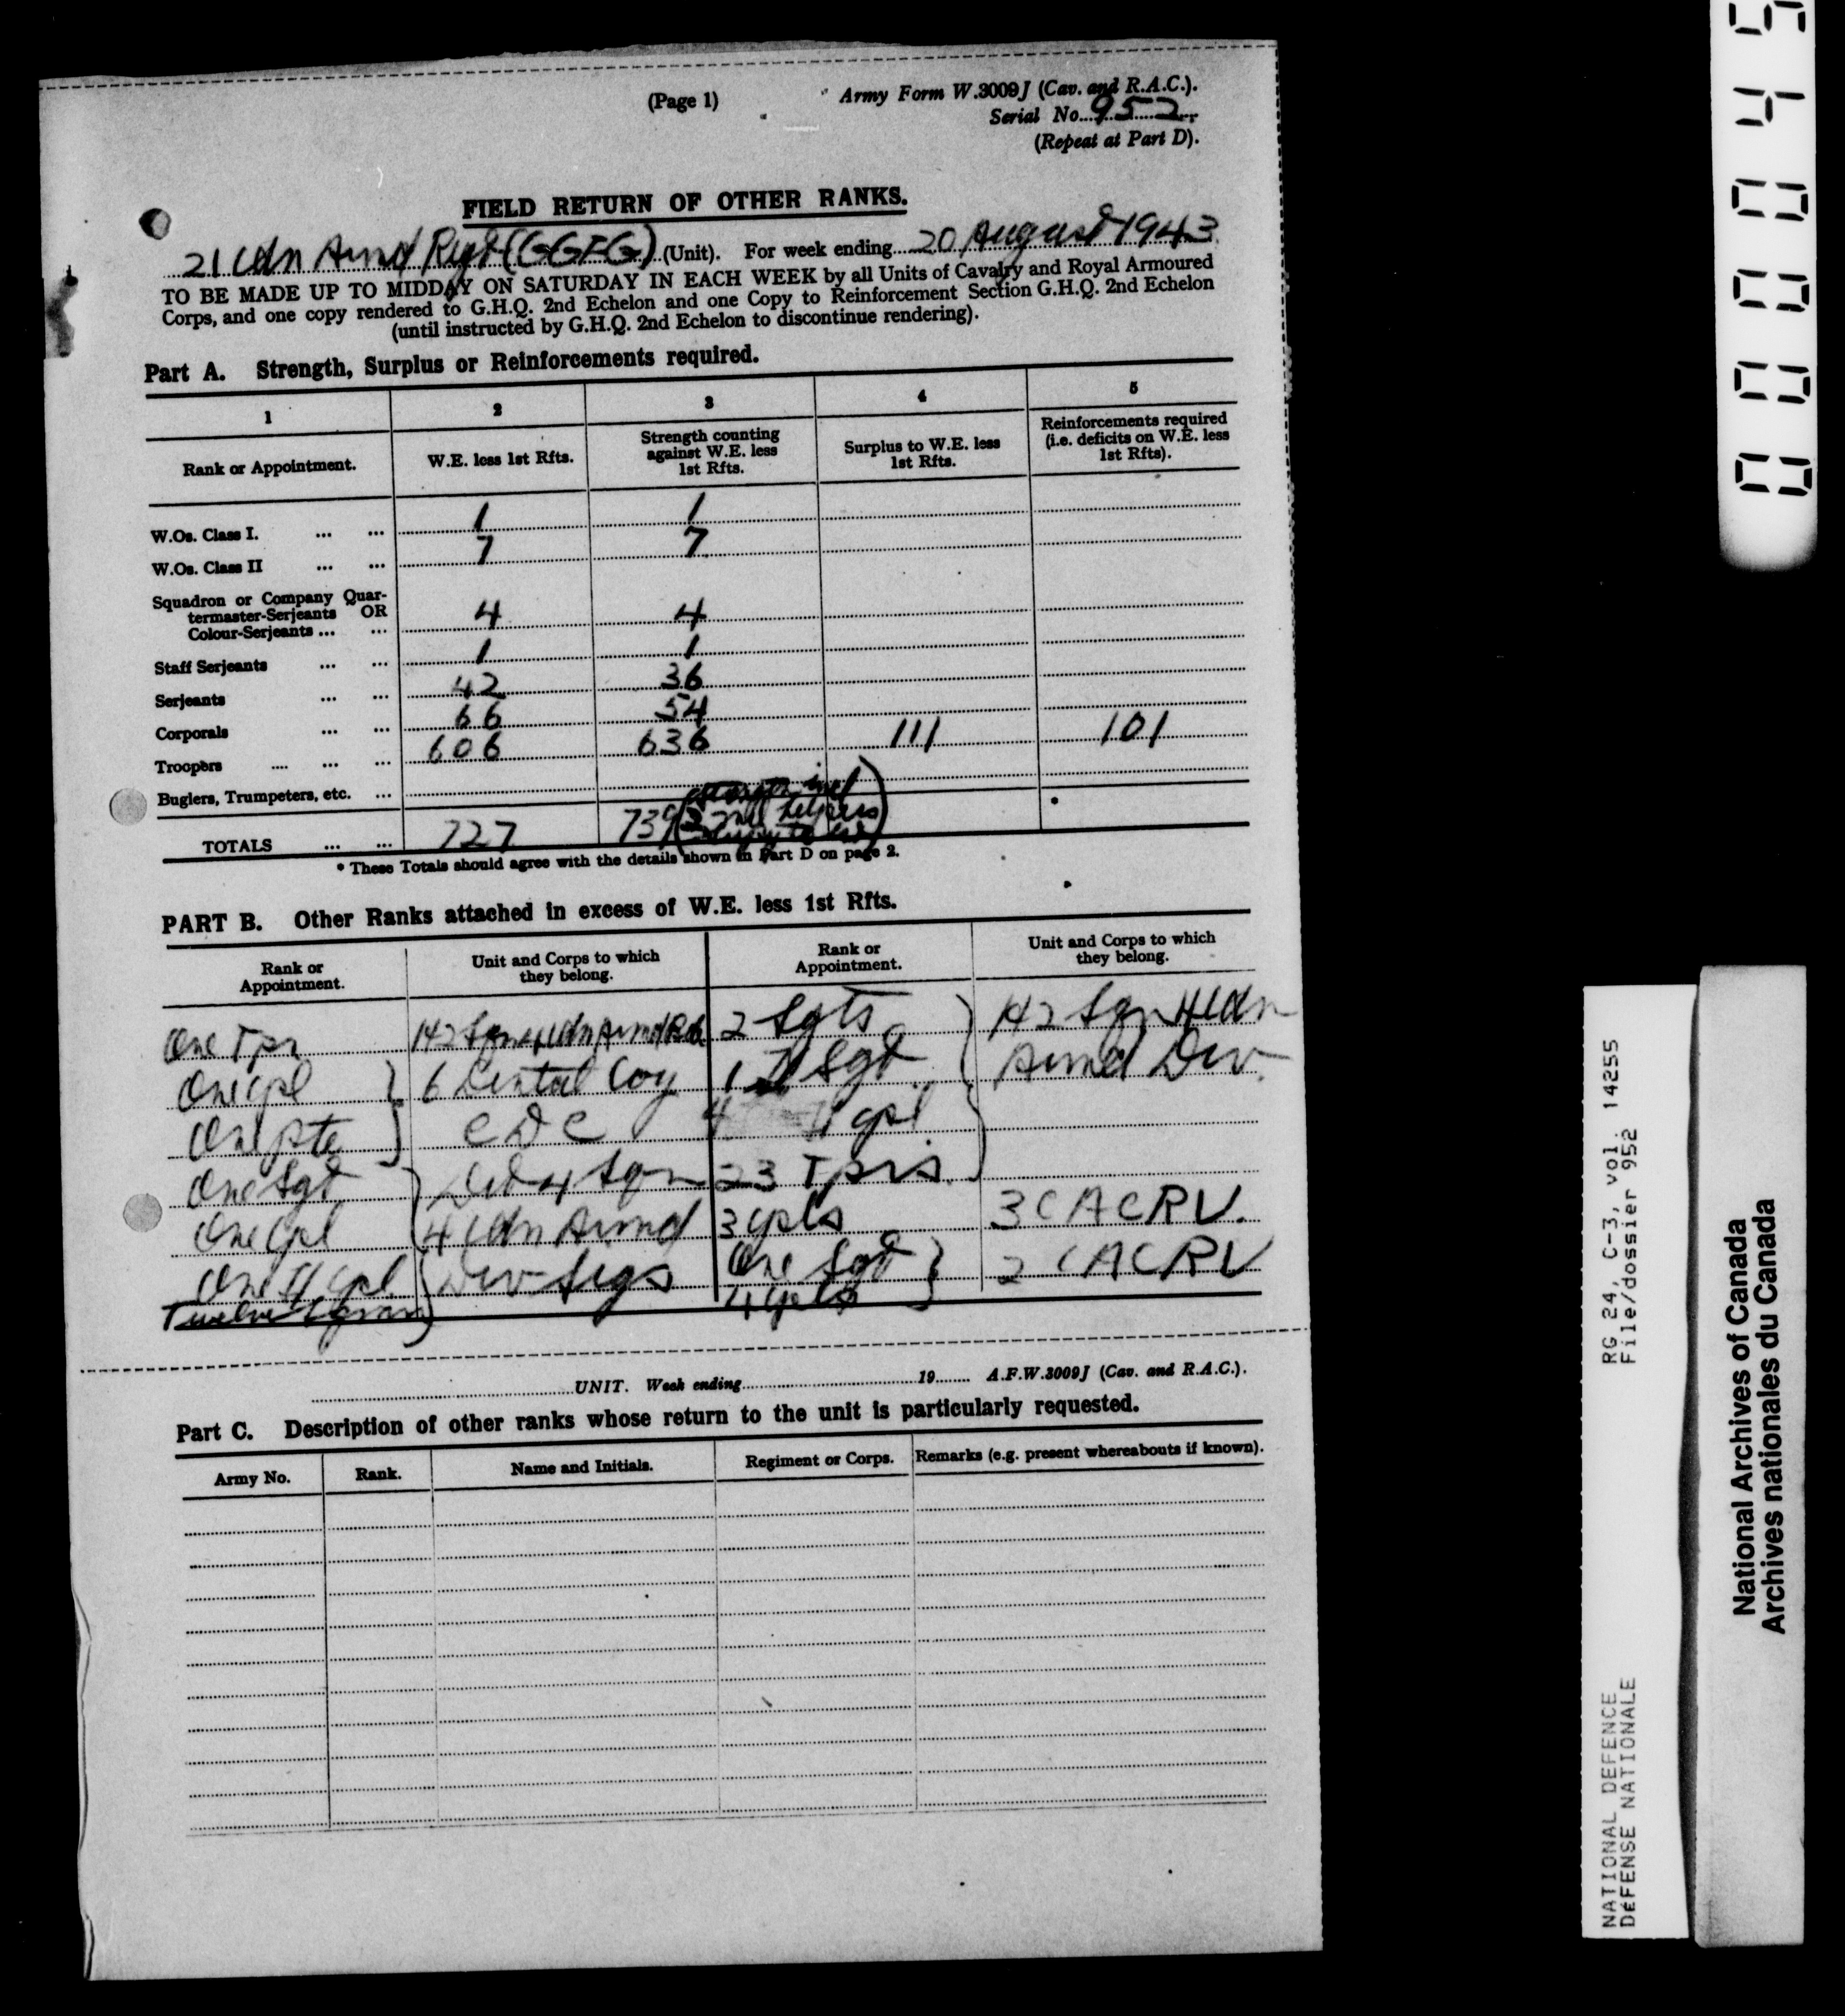 (Page 1)
Army Form W.3009J (Cav. and R.A.C.).
Serial No. 952
(Repeat at Part D).
FIELD RETURN OF OTHER RANKS.
21 Cdn Armd Regt (GGFG) (Unit). For week ending 20 August 1943
TO BE MADE UP TO MIDDAY ON SATURDAY IN EACH WEEK by all Units of Cavalry and Royal Armoured
Corps, and one copy rendered to G.H.Q. 2nd Echelon and one Copy to Reinforcement Section G.H.Q. 2nd Echelon
(until instructed by G.H.Q. 2nd Echelon to discontinue rendering).
Part A. Strength, Surplus or Reinforcements required.
1 2 3 4 5
Rank or Appointment. W.E. less 1st Rfts. Strength counting against W.E. less 1st Rfts. Surplus to W.E. less 1st Rfts. Reinforcements required (i.e. deficits on W.E. less 1st Rfts).
W.Os. Class I. ... ... 1 1
W.Os. Class II ... ... 7 7
Squadron or Company Quar-
termaster-Serjeants OR
Colour-Serjeants ... ... 4 4
Staff Serjeants ... ... 1 1
Serjeants ... ... 42 36
Corporals ... ... 66 54
Troopers .... ... ... 606 636 111 101
Buglers, Trumpeters, etc. ...
TOTALS ... ... 727 739
* These Totals should agree with the details shown in Part D on page 2.
PART B. Other Ranks attached in excess of W.E. less 1st Rfts.
Rank or Appointment. Unit and Corps to which they belong. Rank or Appointment. Unit and Corps to which they belong.
One Tpr 142 Sqn 4 Cdn Armd 2 Sgts 142 Sqn 4 Cdn
One Cpl 6 Dental Coy 1 Sgt Armd Div.
One Pte CDC 4 Cpl
One Sgt Det 4 Sqn 23 Tprs.
One Cpl 4 Cdn Armd 3 Cpls 3 CACRU.
One Cpl Div Sigs One Sgt 2 CACRU
Twelve 4 Cpls
UNIT. Week ending 19 A.F.W.3009J (Cav. and R.A.C.).
Part C. Description of other ranks whose return to the unit is particularly requested.
Army No. Rank. Name and Initials. Regiment or Corps. Remarks (e.g. present whereabouts if known).
RG 24, C-3, vol. 14255
File/dossier 952
NATIONAL DEFENCE
DÉFENSE NATIONALE
National Archives of Canada
Archives nationales du Canada